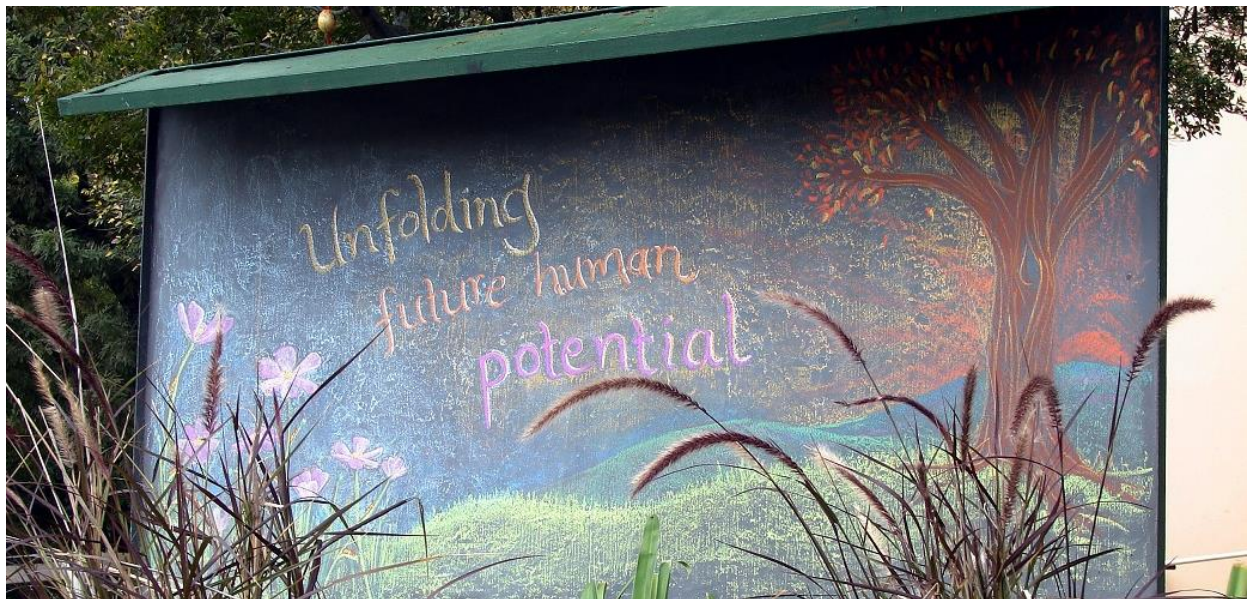 Unfolding
future human
potential